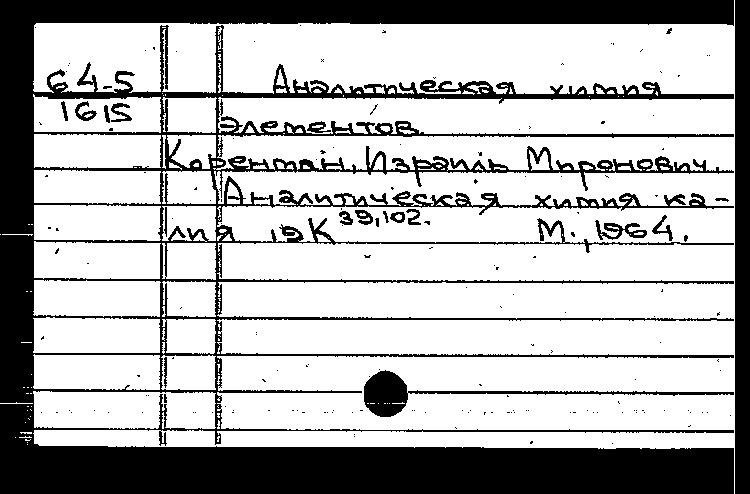 64-5 Аналитическая химия
1615 элементов.
Коренман, Израиль Миронович.
Аналитическая химия ка-
лия 19К 39,102. М., 1964.